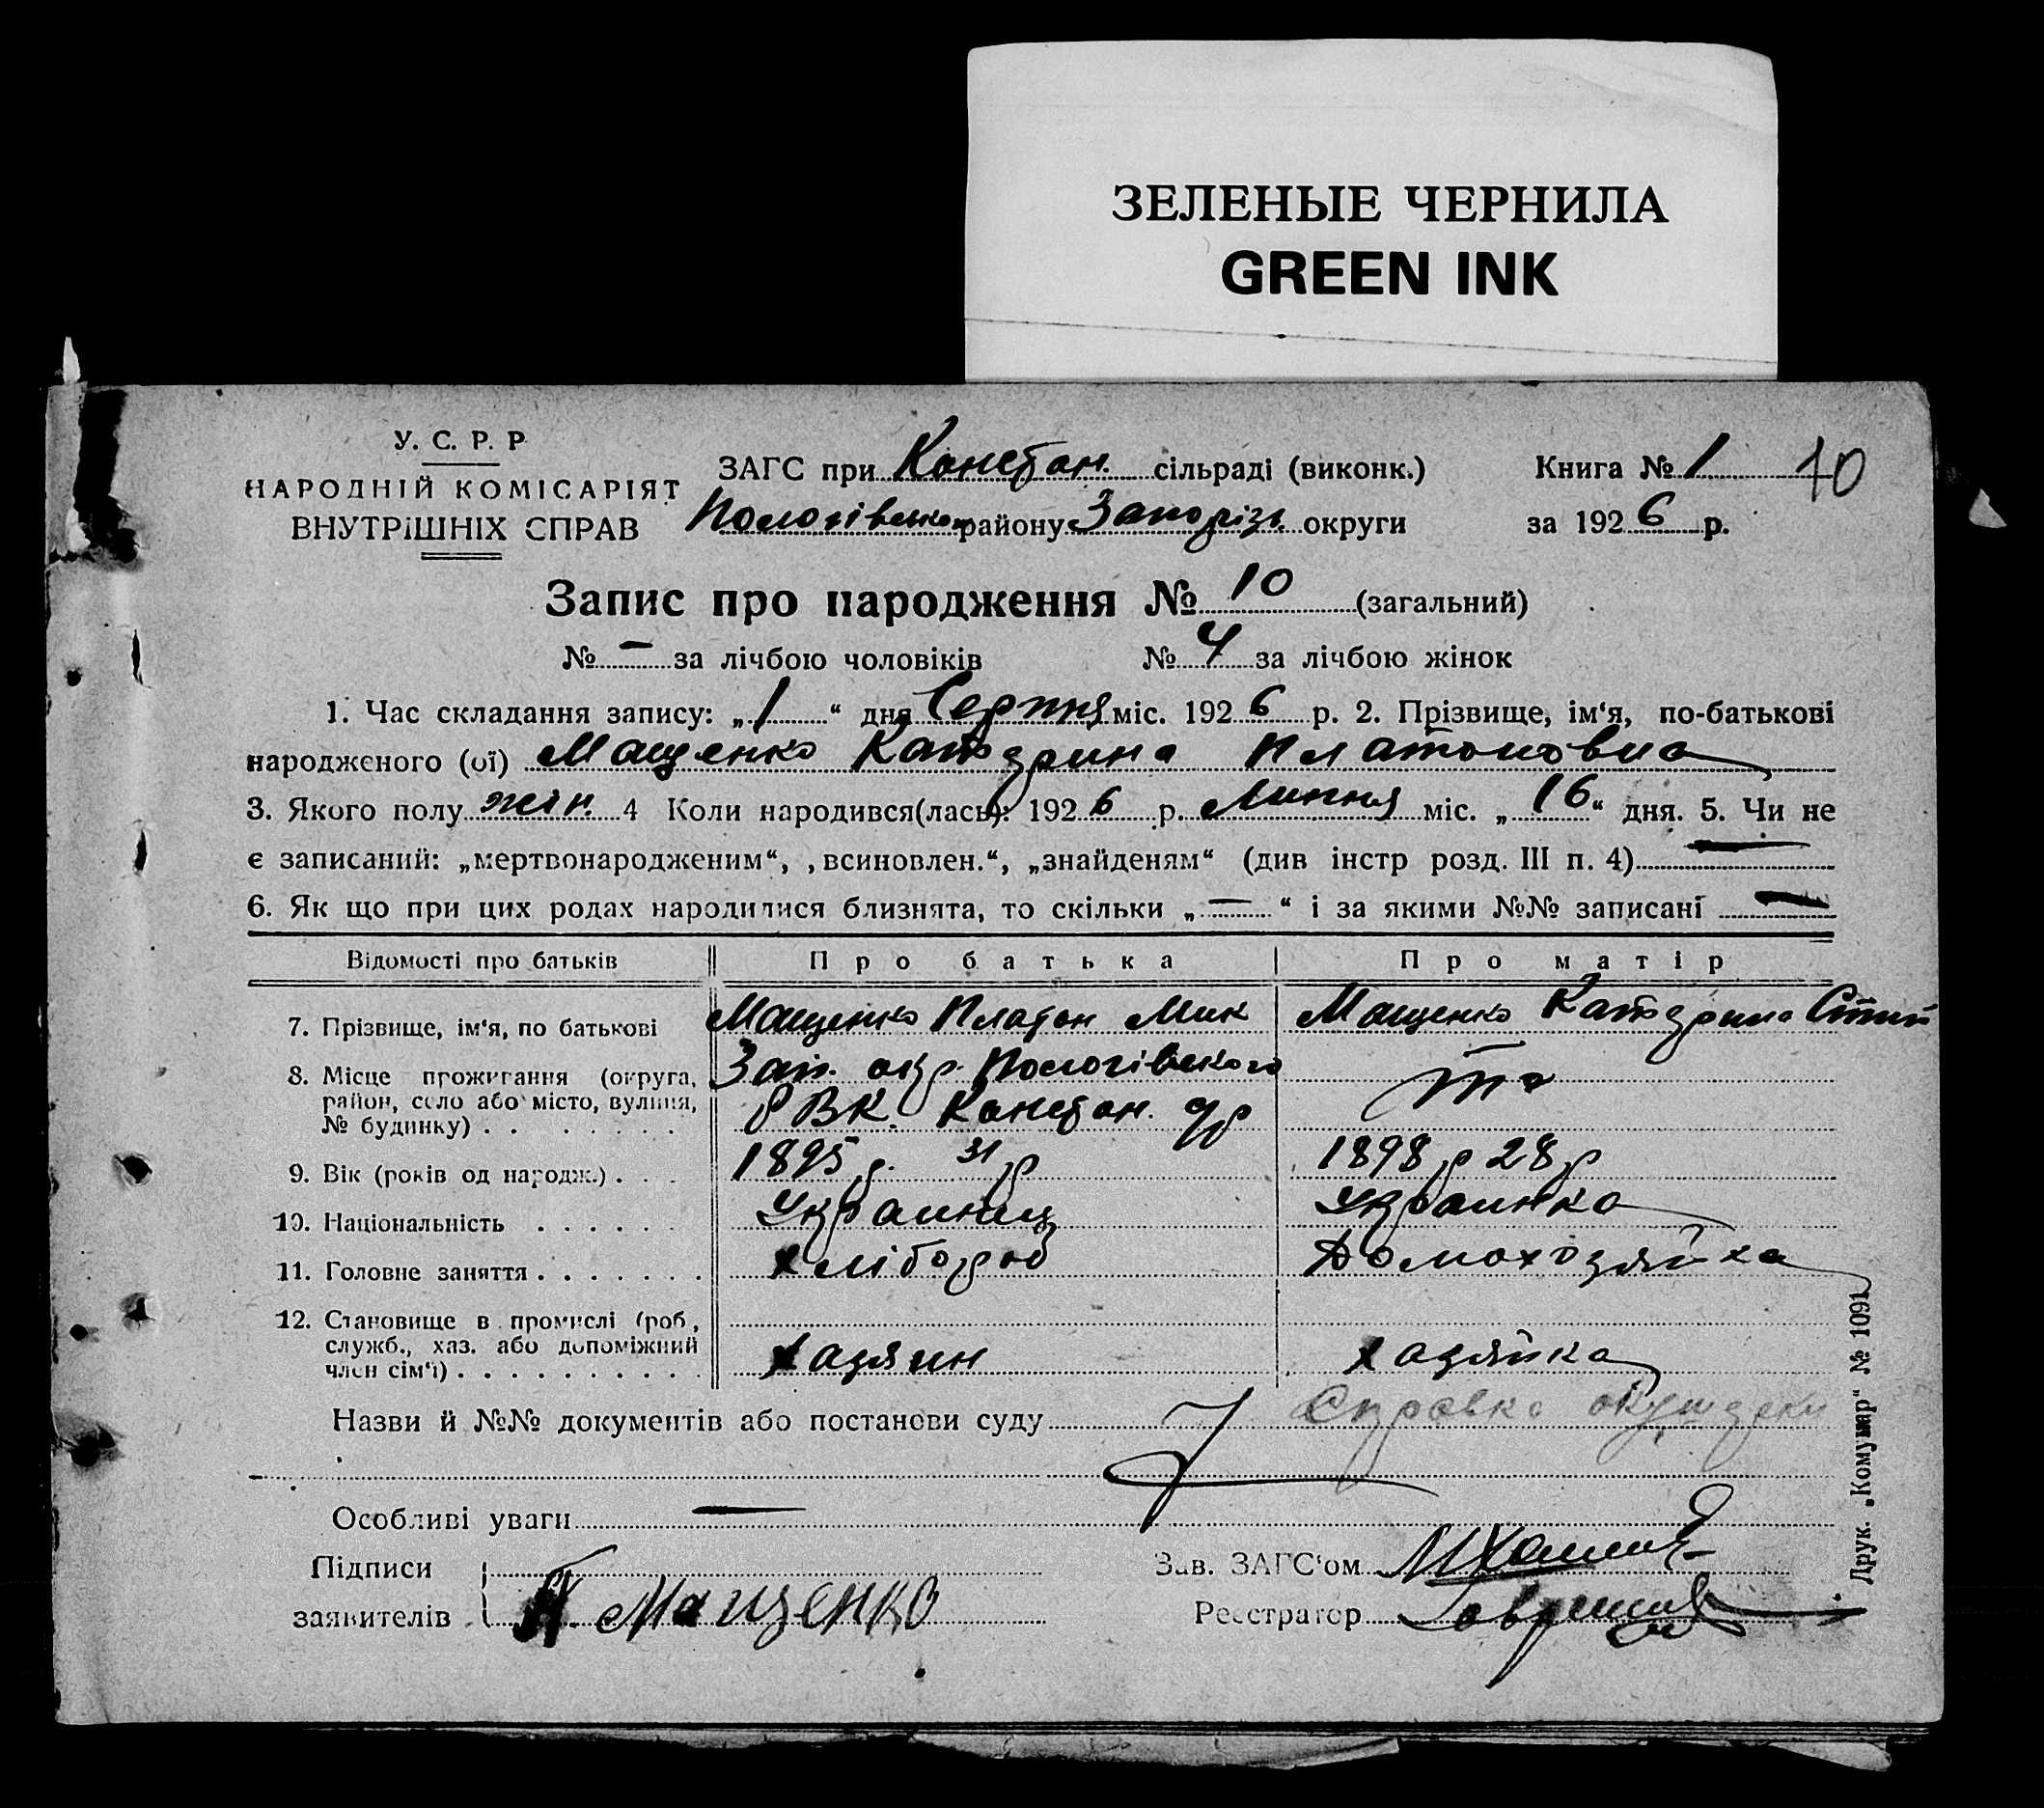 ЗЕЛЕНЫЕ ЧЕРНИЛА
GREEN INK
У. С. Р. Р
НАРОДНІЙ КОМІСАРІЯТ
ВНУТРІШНІХ СПРАВ
ЗАГС при Констан. сільраді (виконк.)
Пологівського району Запоріз. округи
Книга № 1 10
за 1926 р.
Запис про народження № 10 (загальний)
№ — за лічбою чоловіків № 4 за лічбою жінок
1. Час складання запису: „1“ дня Серпня міс. 1926 р. 2. Прізвище, ім'я, по-батькові
народженого (ої) Мащенко Катерина Платоновна
3. Якого полу жін. 4 Коли народився(лась): 1926 р. Липня міс. „16“ дня. 5. Чи не
є записаний: „мертвонародженим“, „всиновлен.“, „знайденям“ (див інстр розд. III п. 4) —
6. Як що при цих родах народилися близнята, то скільки „—“ і за якими №№ записані —
Відомості про батьків Про батька Про матір
7. Прізвище, ім'я, по батькові Мащенко Платон Мик Мащенко Катерина
8. Місце прожигання (округа, район, село або місто, вулиця, № будинку) Зап. окр. Пологівского РВК. Констан. с/р
9. Вік (років од народж.) 1895 р. 31 р 1898 р 28 р
10. Національність Украинец Украинка
11. Головне заняття хлібороб Домохозяйка
12. Становище в промислі (роб, служб., хаз. або допоміжний член сім'ї) хазяин хазяйка
Назви й №№ документів або постанови суду Справка
Особливі уваги —
Підписи
заявителів П. Мащенко
Зав. ЗАГС'ом
Реєстратор
Друк. „Комунар“ № 1091